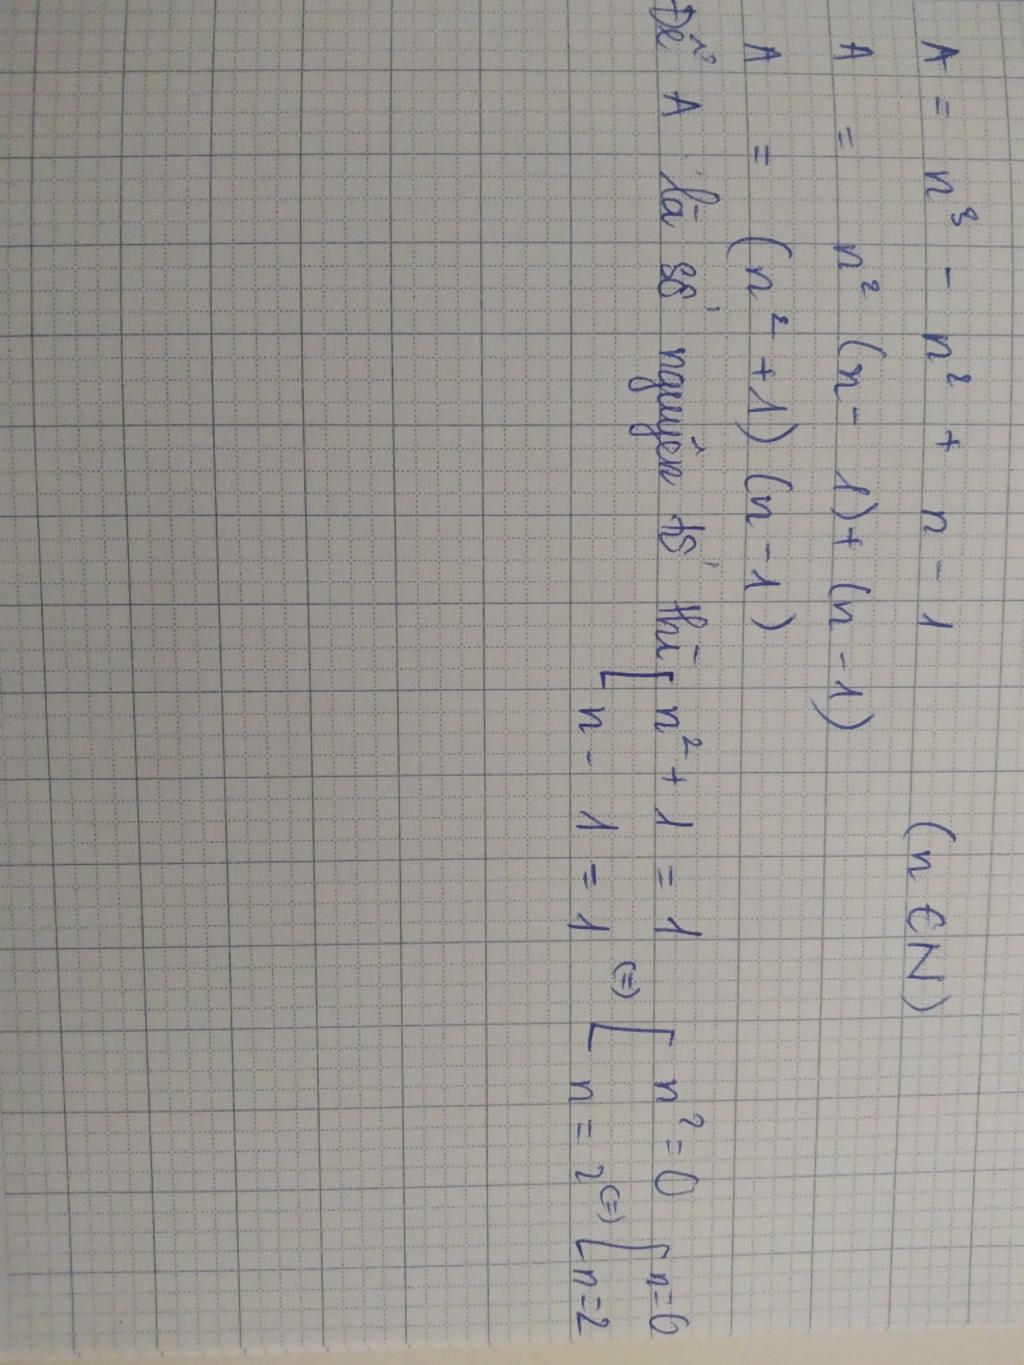 A = n³ - n² + n - 1 (n ∈ N)
A = n² (n - 1) + (n - 1)
A = (n² + 1) (n - 1)
Để A là số nguyên tố thì [ n² + 1 = 1 (=) [ n² = 0 (=) [ n = 0
n - 1 = 1 n = 2 n = 2